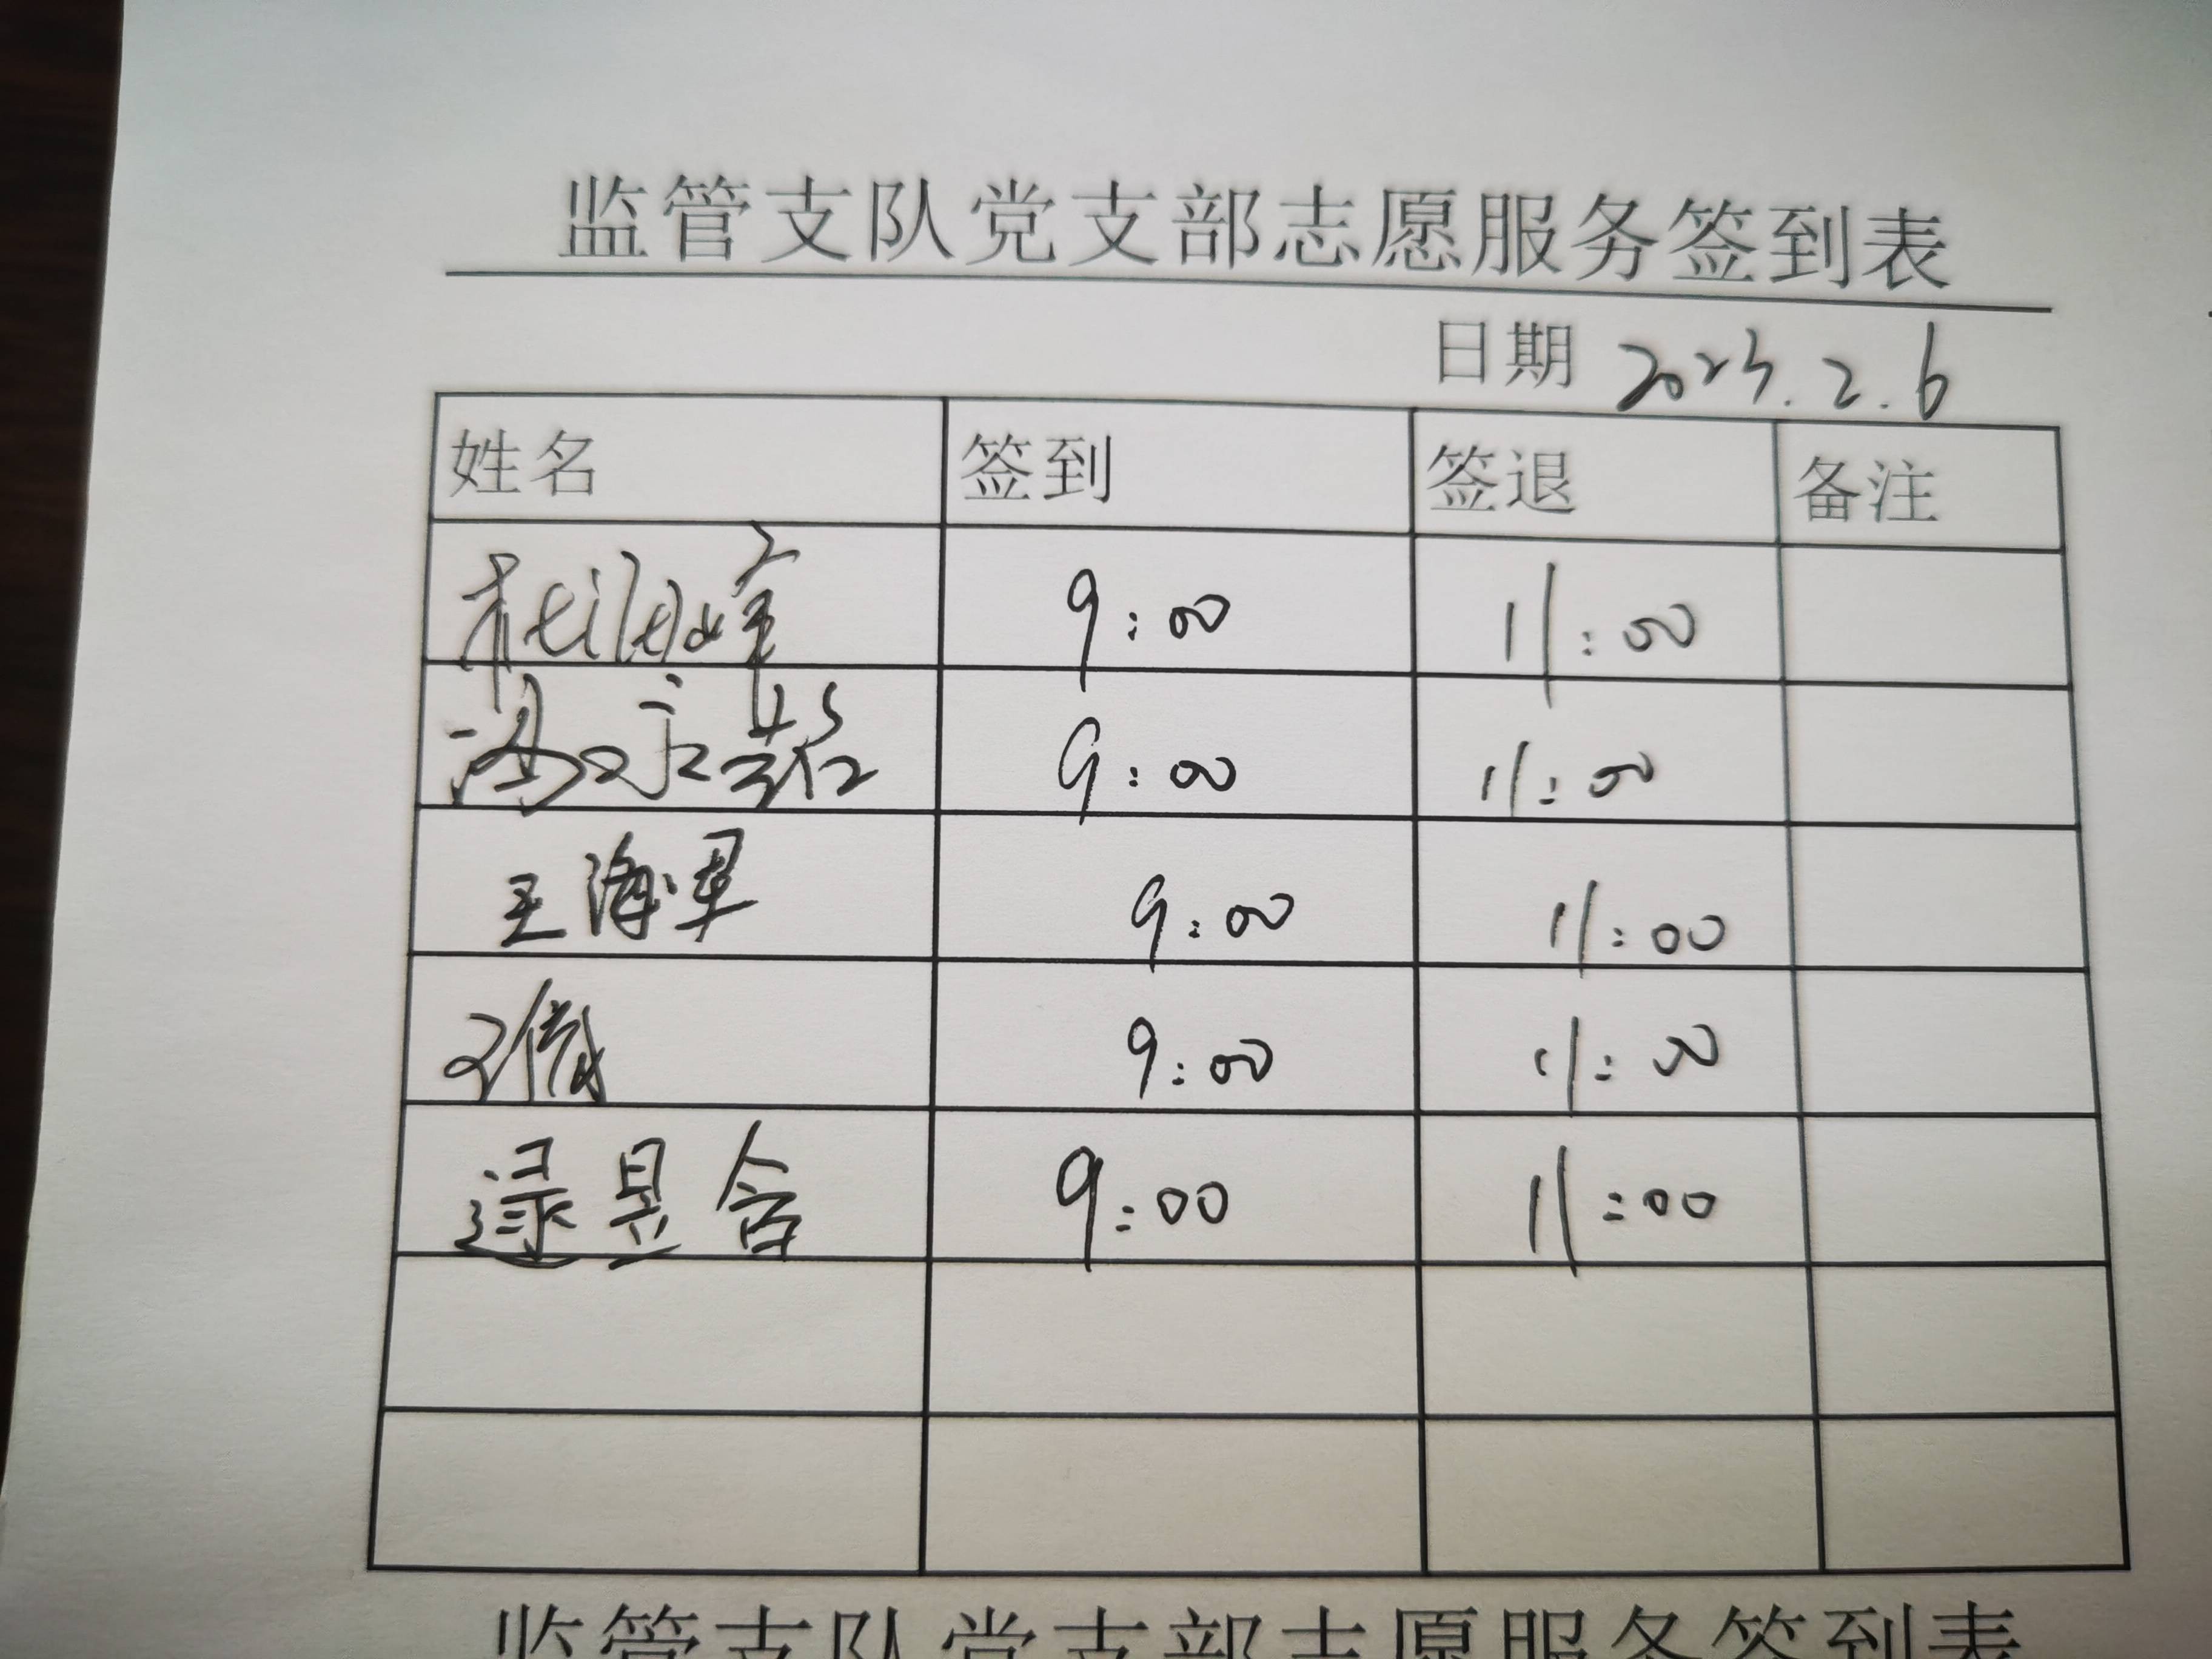 监管支队党支部志愿服务签到表
日期 2023.2.6
姓名 签到 签退 备注
9:00 11:00
9:00 11:00
王海军 9:00 11:00
9:00 11:00
逯昱含 9:00 11:00
监管支队党支部志愿服务签到表